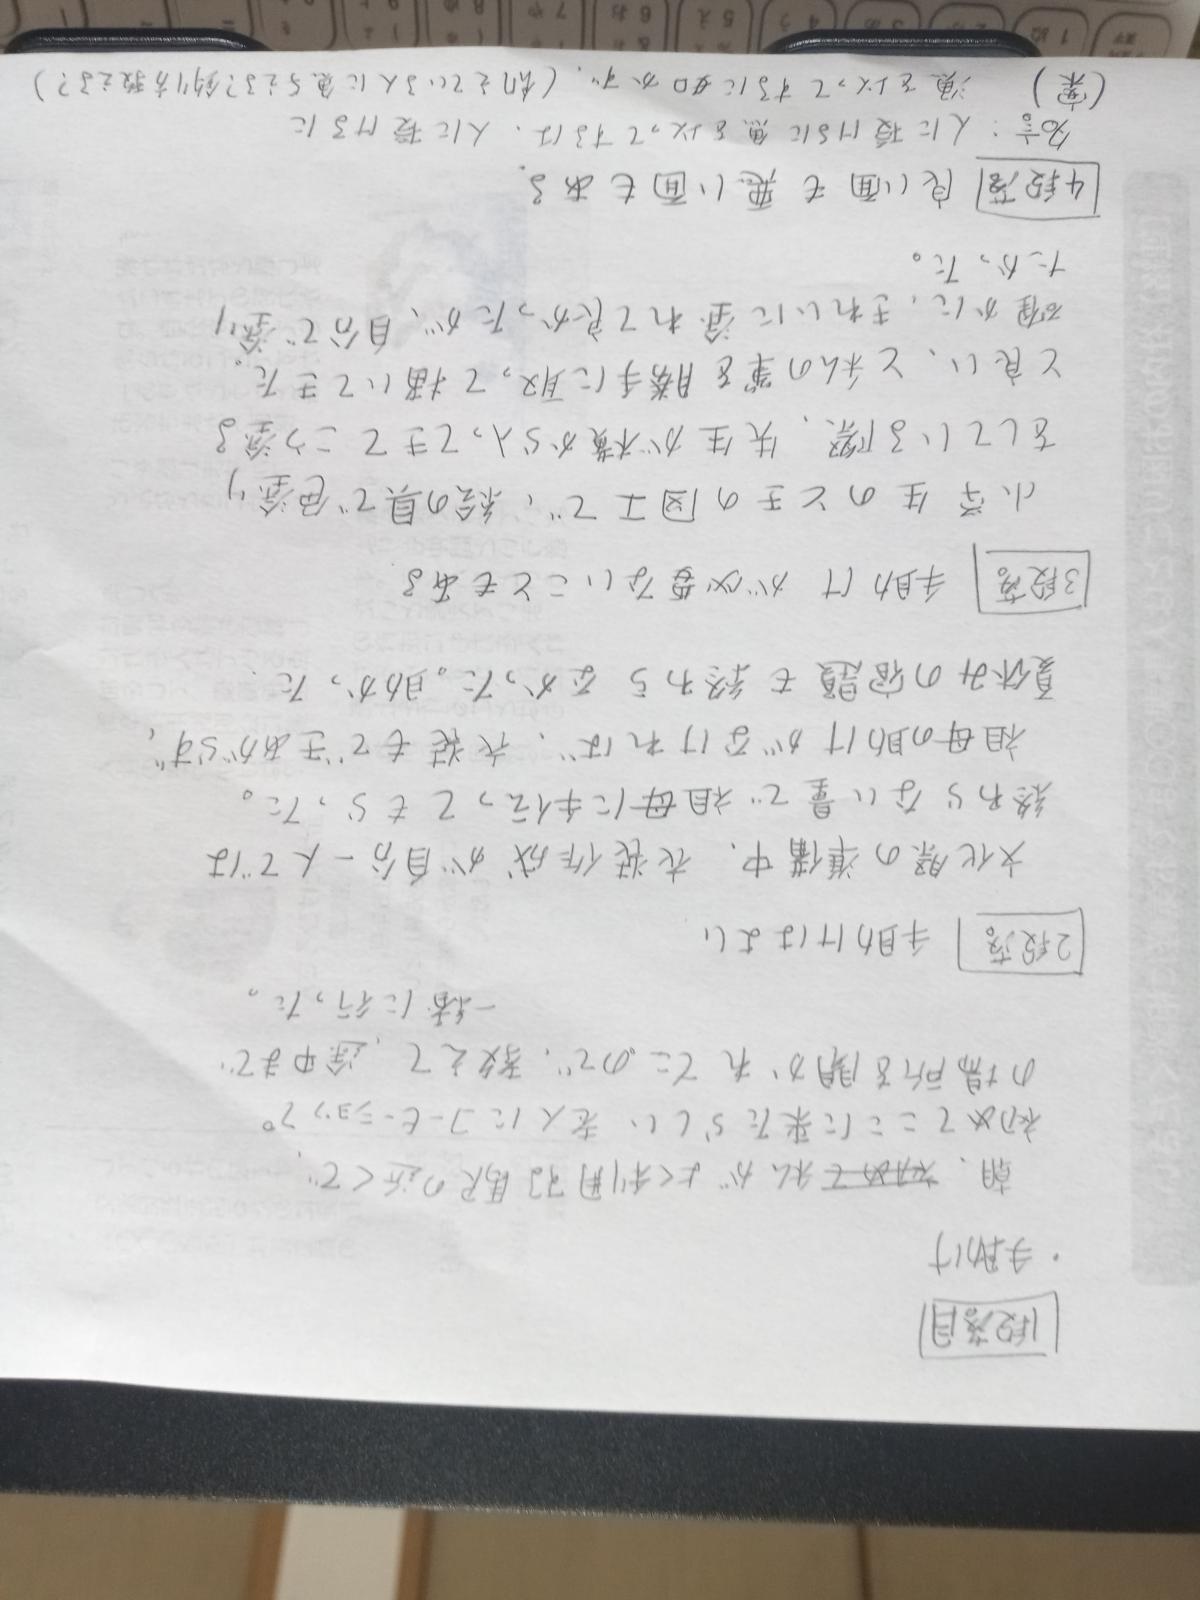 1段落目
・手助け
朝、私がよく利用する駅の近くで、
初めてここに来たらしい老人にコーヒーショップ
の場所を聞かれてこので、教えて、途中まで
一緒に行った。
2段落 手助けはよい
文化祭の準備中、衣装作成が自分一人では
終わらない量で祖母に手伝ってもらった。
祖母の助けがなければ、衣装もできあがらず、
夏休みの宿題も終わらなかった。助かった。
3段落 手助けが必要ないこともある
小学生のときの図工で、絵の具で色塗り
をしている際、先生が横から入ってきてこう塗る
と良い、と私の筆を勝手に取って描いてきた。
確かに、きれいに塗れて良かったが、自分で塗り
たかった。
4段落 良い面も悪い面もある。
名言:人に授けるに魚を以ってするは、人に授けるに
(案) 漁を以ってするに如かず。(飢えている人に魚与える?釣り方教える?)